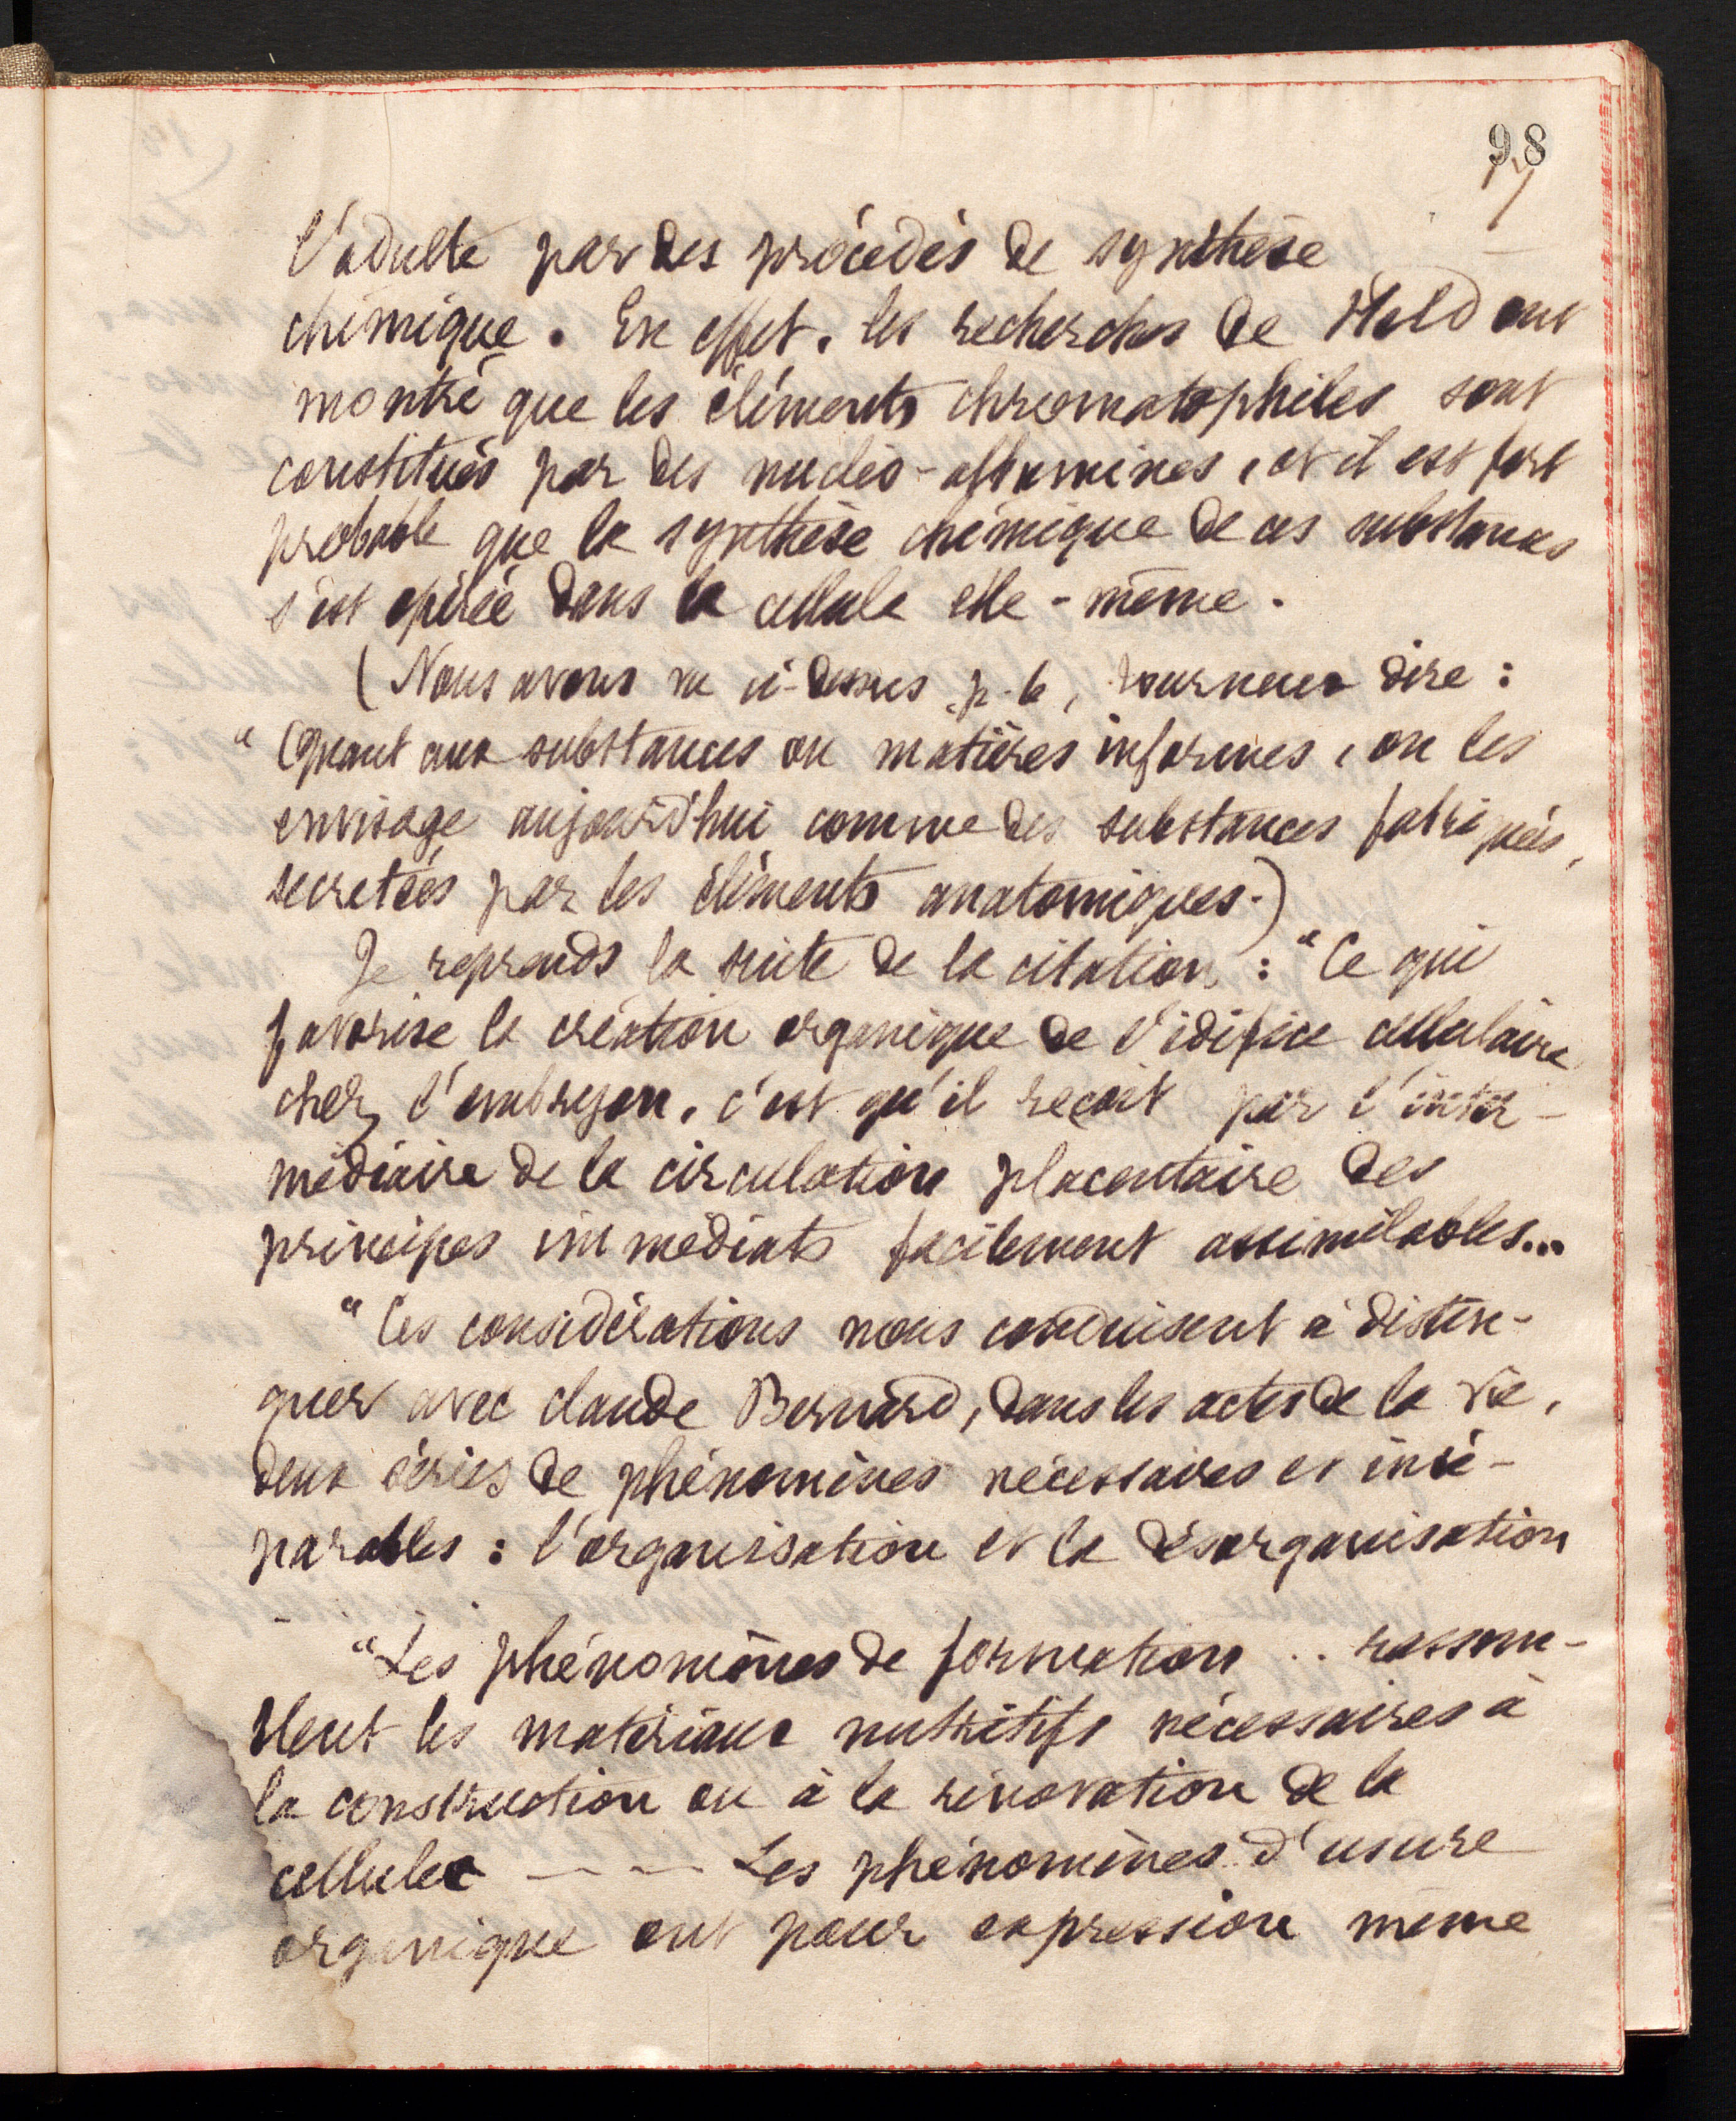 98
17
l'adulte par des procédés de synthèse
chimique. En effet, les recherches de Held ont
montré que les éléments chromatophiles sont
constitués par des nucléo-albumines, et il est fort
probable que la synthèse chimique de ces substances
s'est opérée dans la cellule elle-même.
(Nous avons vu ci-dessus, p. 6, Tourneux dire :
"Quant aux substances ou matières informes, on les
envisage aujourd'hui comme des substances fabriquées,
secretées par les éléments anatomiques.)
Je reprends la suite de la citation : "Ce qui
favorise la création organique de l'édifice cellulaire
chez l'embryon, c'est qu'il reçoit par l'inter-
médiaire de la circulation placentaire des
principes immédiats facilement assimilables...
"Ces considérations nous conduisent à distin-
guer avec Claude Bernard, dans les actes de la vie,
deux séries de phénomènes nécessaires et insé-
parables : l'organisation et la désorganisation
"Les phénomènes de formation .. rassem-
blent les matériaux nutritifs nécessaires à
la construction ou à la rénovation de la
cellule - - - Les phénomènes d'usure
organique ont pour expression même